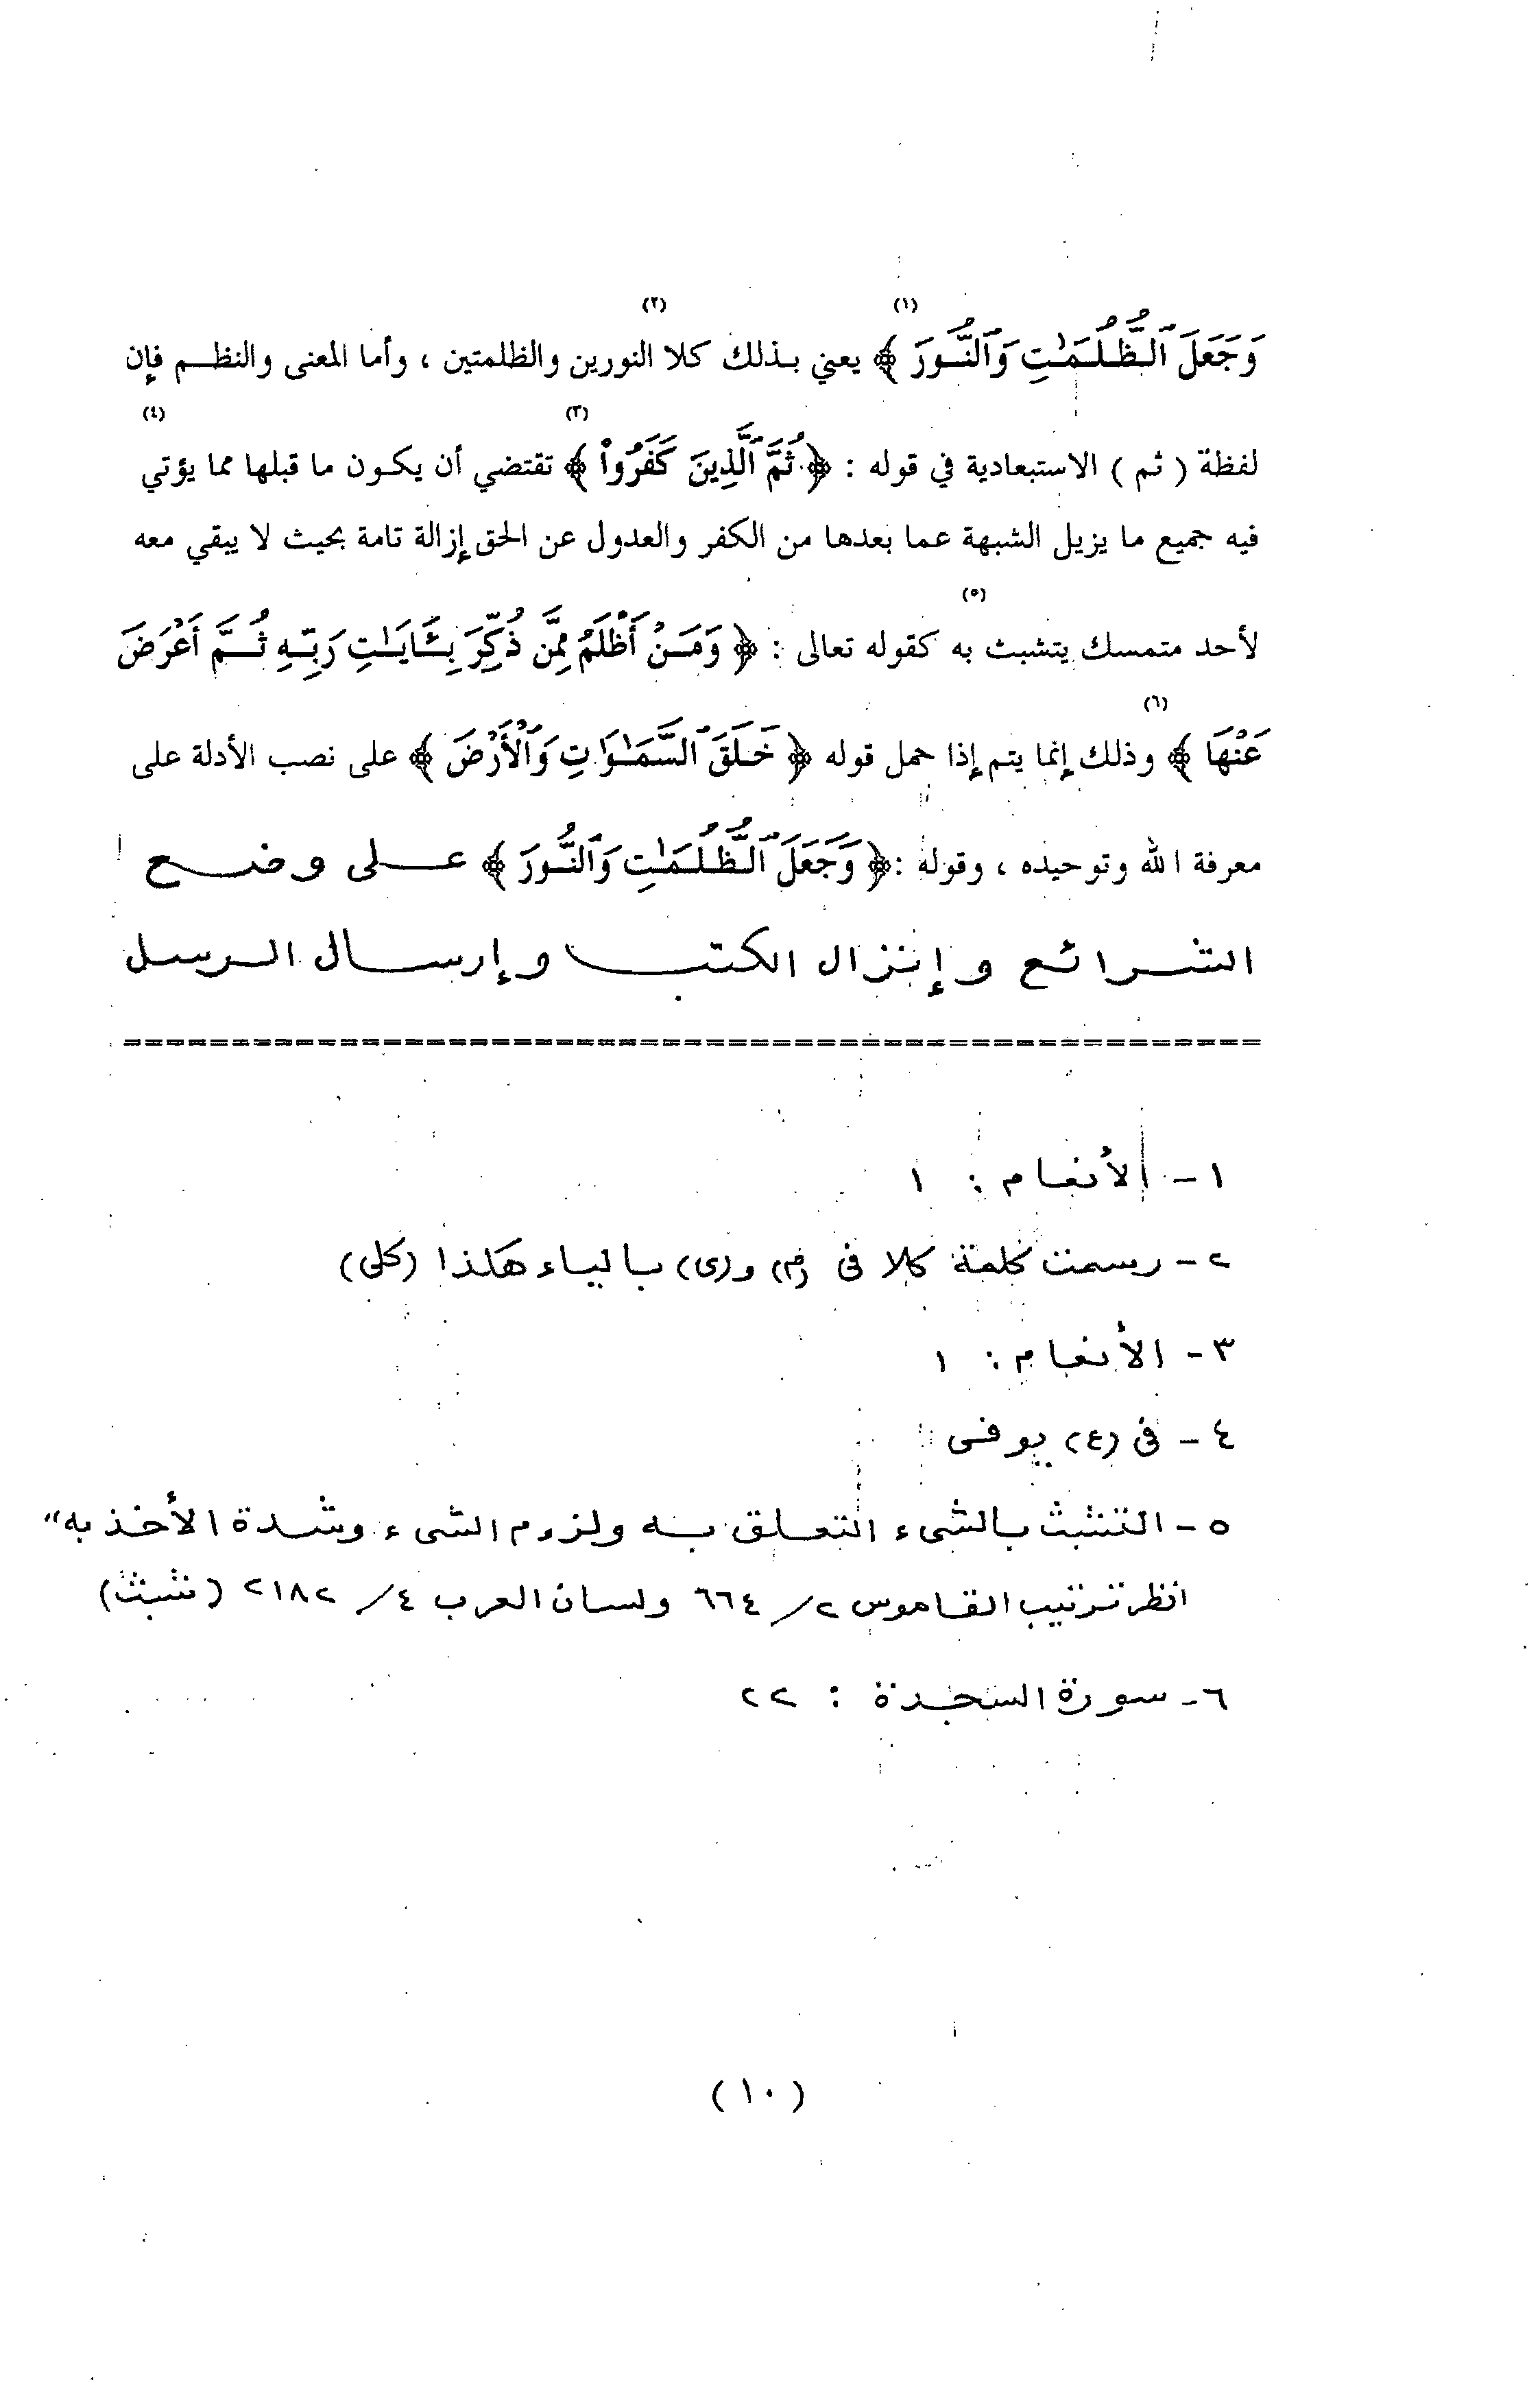 وَجَعَلَ ٱلظُّلُمَٰتِ وَٱلنُّورَ ﴾ (١) يعني بذلك كلا (٢) النورين والظلمتين ، وأما المعنى والنظم فإن
لفظة ( ثم ) الاستبعادية في قوله : ﴿ ثُمَّ ٱلَّذِينَ كَفَرُوا۟ ﴾ (٣) تقتضي أن يكون ما قبلها مما يؤتي (٤)
فيه جميع ما يزيل الشبهة عما بعدها من الكفر والعدول عن الحق إزالة تامة بحيث لا يبقي معه
لأحد متمسك يتشبث به (٥) كقوله تعالى : ﴿ وَمَنْ أَظْلَمُ مِمَّن ذُكِّرَ بِـَٔايَٰتِ رَبِّهِۦ ثُمَّ أَعْرَضَ
عَنْهَا ﴾ (٦) وذلك إنما يتم إذا حمل قوله ﴿ خَلَقَ ٱلسَّمَٰوَٰتِ وَٱلْأَرْضَ ﴾ على نصب الأدلة على
معرفة الله وتوحيده ، وقوله : ﴿ وَجَعَلَ ٱلظُّلُمَٰتِ وَٱلنُّورَ ﴾ على وضع
الشرائع وإنزال الكتب وإرسال الرسل
١ - الأنعام : ١
٢ - رسمت كلمة كلا فى (م) و(ى) بالياء هكذا (كلى)
٣ - الأنعام : ١
٤ - فى (ع) يوفى
٥ - التشبث بالشىء التعلق به ولزوم الشىء وشدة الأخذ به"
انظر ترتيب القاموس ٢/ ٦٦٤ ولسان العرب ٤/ ٢١٨٢ (شبث)
٦ - سورة السجدة : ٢٢
( ١٠ )